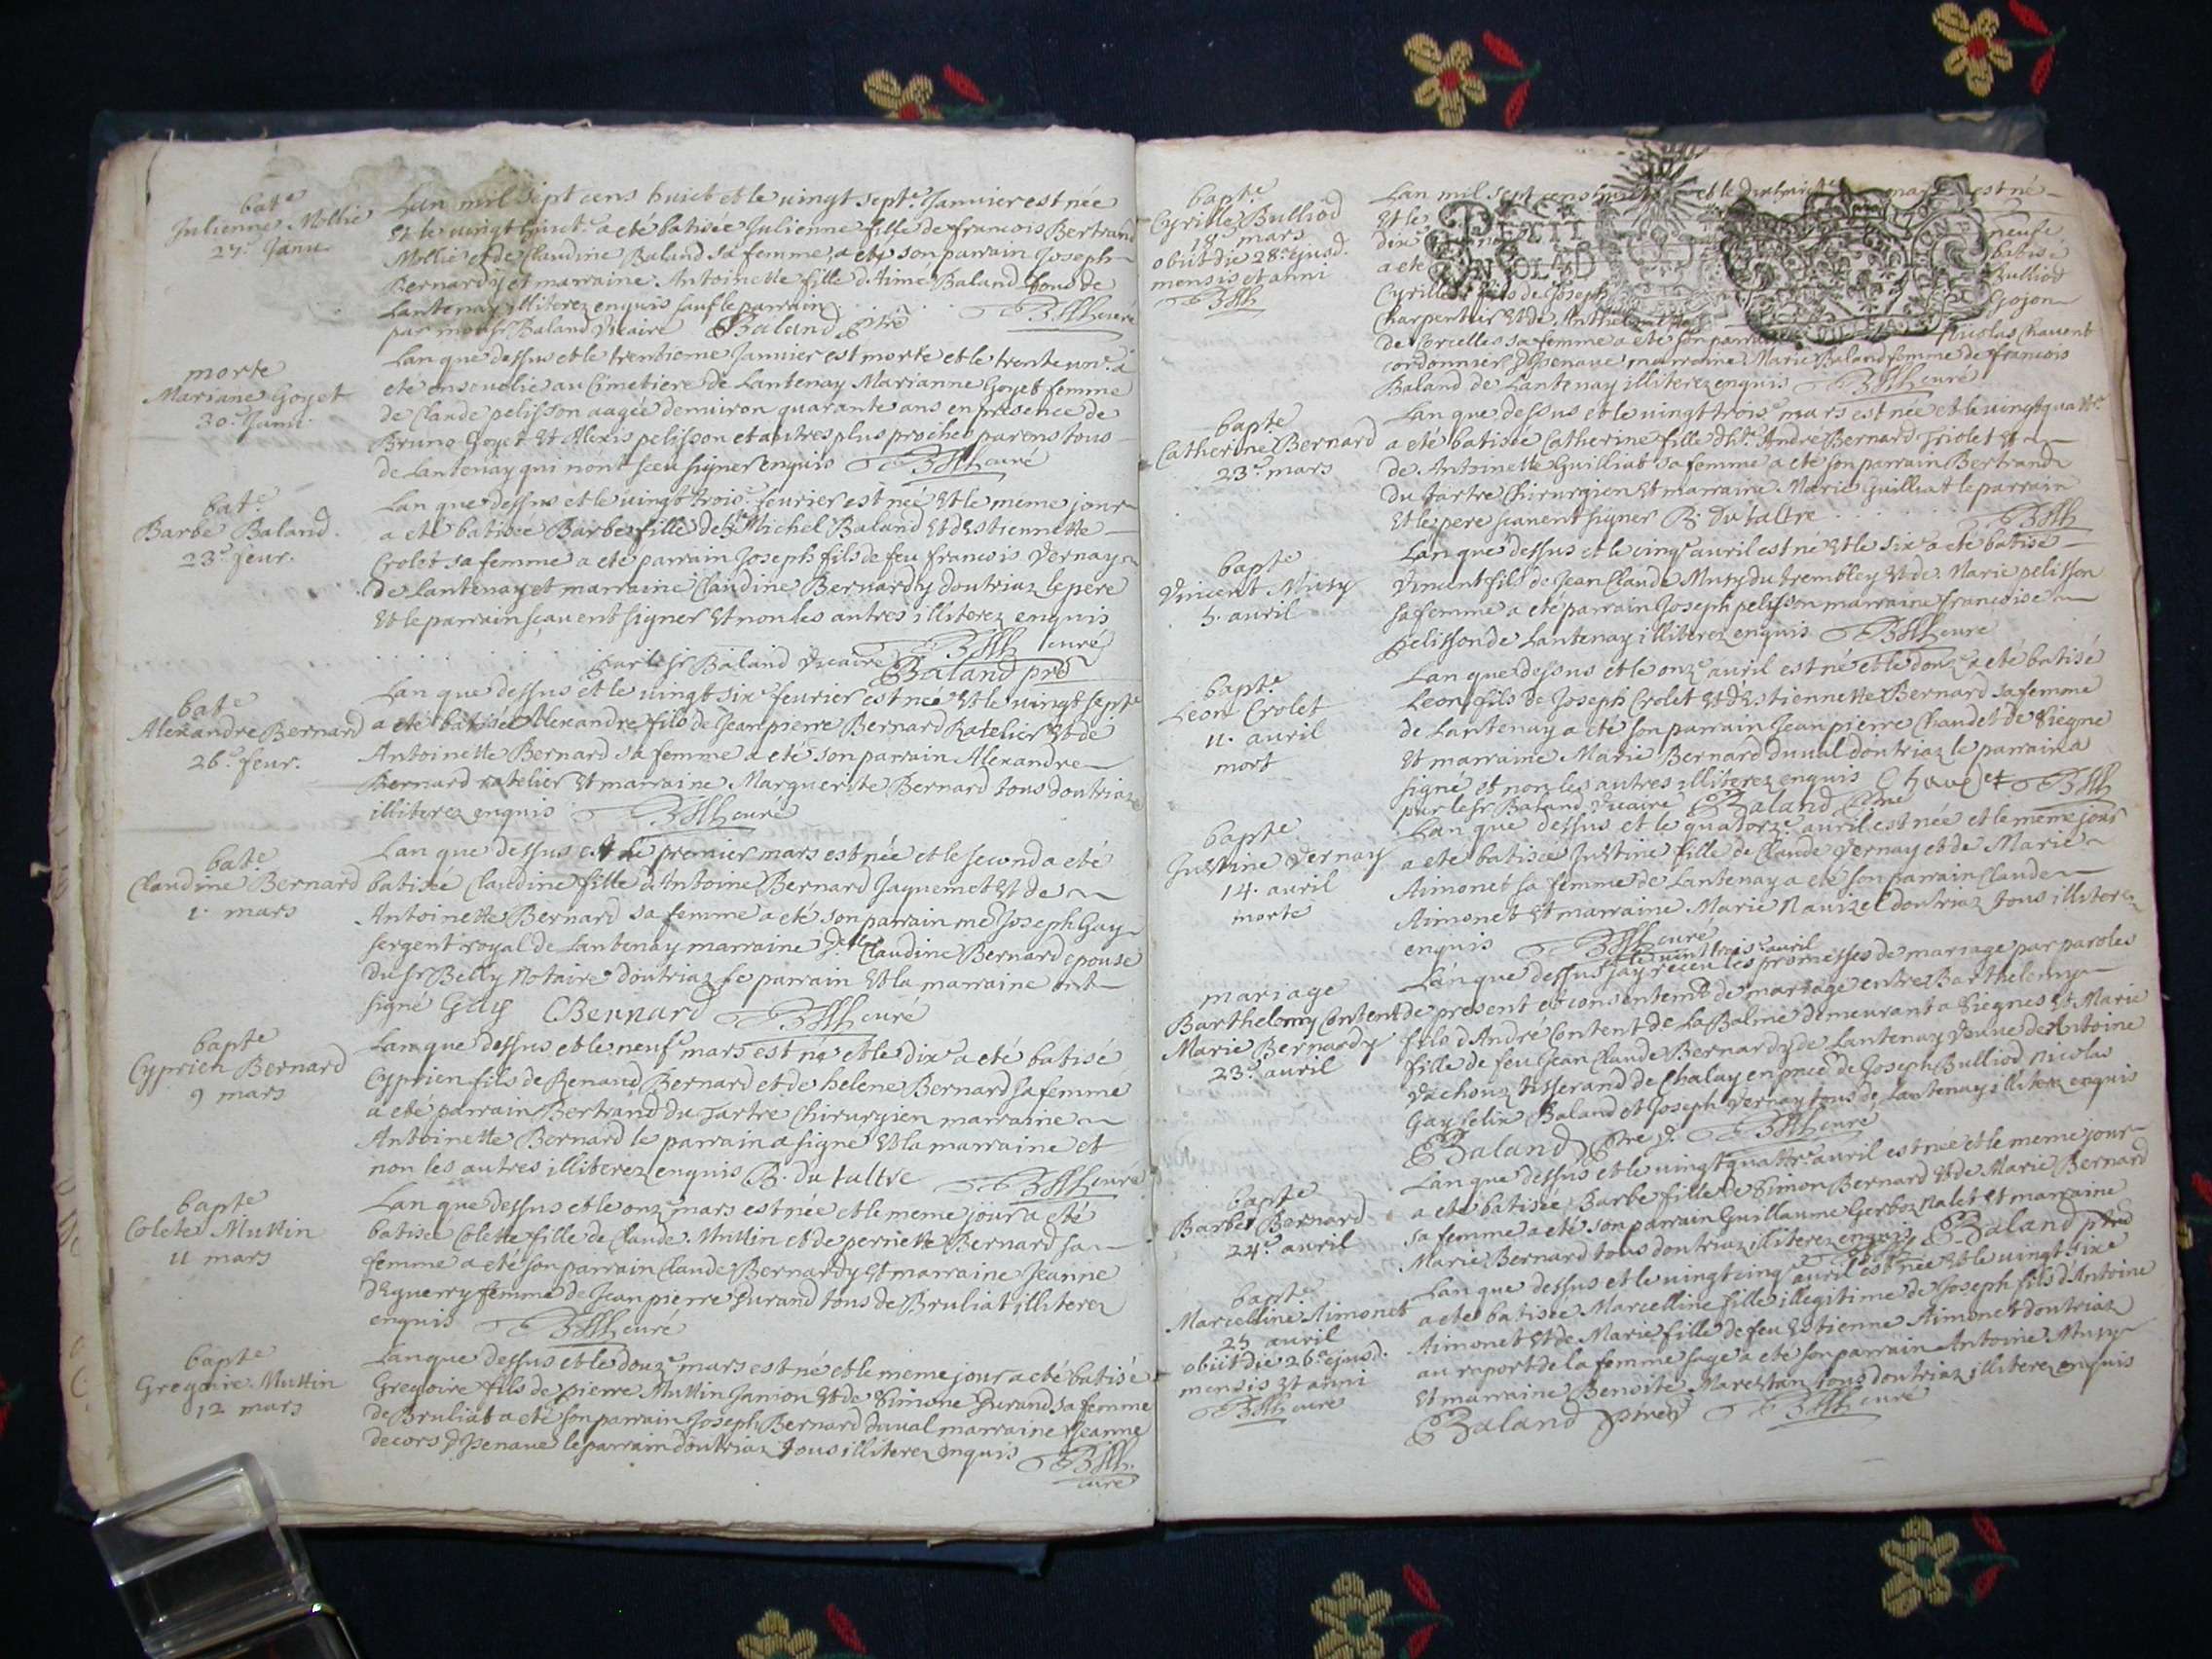 bat.e
Julienne Mollie
27.e Janu.
Lan mil sept cens huict et le vingt sept.e Janvier est née
Et le vingt huict.e a eté batisée Julienne fille de francois Bertrand
Mollie et de Claudine Baland sa femme, a eté son parrain Joseph
Bernardy et marraine Antoinette fille d'Aimé Baland tous de
Lantenay illiterez enquis sauf le parrain
par mons.r Baland Vicaire Baland ptre curé
morte
Mariane Goyet
30.e Janv.
Lan que dessus et le trentieme Janvier est morte et le trente un.e a
eté ensevelie au Cimetiere de Lantenay Marianne Goyet femme
de Claude pelisson aagée d'environ quarante ans en presence de
Bruno Goyet Et Alexis pelisson et autres plus proches parens tous
de Lantenay qui n'ont sceu signer enquis curé
bat.e
Barbe Baland
23.e fevr.
Lan que dessus et le vingt trois.e fevrier est née Et le meme jour
a eté batisée Barbe fille de h.e Michel Baland Et d'Estiennette
Crolet sa femme a eté parrain Joseph fils de feu francois Vernay
de Lantenay et marraine Claudine Bernardy doutriaz le pere
Et le parrain sçavent signer Et non les autres illiterez enquis
curé
par le Sr Baland Vicaire Baland ptre
bat.e
Alexandre Bernard
26.e fevr.
Lan que dessus et le vingt six.e fevrier est née Et le vingt sept.e
a eté batisée Alexandre fils de Jean pierre Bernard Ratelier Et de
Antoinette Bernard sa femme a eté son parrain Alexandre
Bernard ratelier Et marraine Marguerite Bernard tous doutriaz
illiterez enquis curé
bat.e
Claudine Bernard
1. mars
Lan que dessus et le premier mars est née et le second a eté
batisée Claudine fille d'Antoine Bernard Jaquemet Et de
Antoinette Bernard sa femme a eté son parrain me Joseph Guy
sergent royal de Lantenay marraine d.elle Claudine Bernard epouse
du sr Belly Notaire doutriaz le parrain Et la marraine ont
signé Guy CBernard curé
bapt.e
Cyprien Bernard
9 mars
Lan que dessus et le neuf.e mars est né et le dix.e a eté batisé
Cyprien fils de Renaud Bernard et de helene Bernard sa femme
a eté parrain Bertrand du Tartre Chirurgien marraine
Antoinette Bernard le parrain a signé Et la marraine et
non les autres illiterez enquis B. du taltre curé
bapt.e
Colete Muttin
11 mars
Lan que dessus et le onz.e mars est née et le meme jour a eté
batisée Colette fille de Claude Muttin et de pernette Bernard sa
femme a eté son parrain Claude Bernardy Et marraine Jeanne
Deguerry femme de Jean pierre Durand tous de Bruliat illiterez
enquis curé
bapt.e
Gregoire Muttin
12 mars
Lan que dessus et le douz.e mars est né et le meme jour a eté batisé
Gregoire fils de pierre Muttin Janion Et de Simone Durand sa femme
de Bruliat a eté son parrain Joseph Bernard duval marraine Jeanne
decors d'Izenave le parrain doutriaz tous illiterez enquis
curé
bapt.e
Cyrille Bulliod
18.e mars
obiit die 28.a ejusd.
mensis et anni
Lan mil sept cens huict et le dixhuict.e mars est né
Et le neufe
dix batisé
a eté Bulliod
PETIT
Cyrille fils de Joseph Gojon
Charpentier Et de Anthelmette
de Corcelles sa femme a eté son parrain Nicolas Chavent
cordonnier d'Izenave marraine Marie Baland femme de francois
Baland de Lantenay illiterez enquis curé
bapt.e
Catherine Bernard
23.e mars
Lan que dessus et le vingt trois.e mars est née et le vingt quatr.e
a eté batisée Catherine fille d'h.e André Bernard Triolet Et
de Antoinette Guilliat sa femme a eté son parrain Bertrand
du Tartre Chirurgien Et marraine Marie Guilliat le parrain
Et le pere sçavent signer B. du taltre
bapt.e
Vincent Musy
5. avril
Lan que dessus et le cinq.e avril est né Et le six.e a eté batisé
Vincent fils de Jean Claude Musy du trembley Et de Marie pelisson
sa femme a eté parrain Joseph pelisson marraine francoise
pelisson de Lantenay illiterez enquis curé
bapt.e
Leon Crolet
11. avril
mort
Lan que dessus et le onz.e avril est né et le douz.e a eté batisé
Leon fils de Joseph Crolet Et d'Estiennette Bernard sa femme
de Lantenay a eté son parrain Jean pierre Chaudet de Siegne
Et marraine Marie Bernard duval doutriaz le parrain a
signé et non les autres illiterez enquis
par le Sr Baland Vicaire Baland ptre
bapt.e
Justine Vernay
14. avril
morte
Lan que dessus et le quatorz.e avril est née et le meme jour
a eté batisée Justine fille de Claude Vernay et de Marie
Aimonet sa femme de Lantenay a eté son parrain Claude
Aimonet Et marraine Marie Ravizel doutriaz tous illiterez
enquis curé
mariage
Barthelemy Content
Marie Bernardy
23.e avril
le vint trois.e avril
Lan que dessus jay receu les promesses de mariage par paroles
de present et consentem.t de mariage entre Barthelemy
fils d'André Content de La Balme demeurant a Siegnes Et Marie
fille de feu Jean Claude Bernardy de Lantenay veuve de Antoine
Vachouz tisserand de Chalay en pnce de Joseph Bulliod Nicolas
Guy felix Baland et Joseph Vernay tous de Lantenay illiterez enquis
Baland ptre curé
bapt.e
Barbe Bernard
24.e avril
Lan que dessus et le vingt quatr.e avril est née et le meme jour
a eté batisée Barbe fille de Simon Bernard Et de Marie Bernard
sa femme a eté son parrain Guillaume Gerboz Nalet Et marraine
Marie Bernard tous doutriaz illiterez enquis Baland ptre
bapt.e
Marcelline Aimonet
25 avril
obiit die 26.a ejusd.
mensis Et anni
curé
Lan que dessus et le vingt cinq.e avril est née Et le vingt six.e
a eté batisée Marcelline fille illegitime de Joseph fils d'Antoine
Aimonet Et de Marie fille de feu Estienne Aimonet doutriaz
au raport de la femme sage a eté son parrain Antoine Musy
Et marraine Benoite Marestan tous doutriaz illiterez enquis
Baland ptre curé